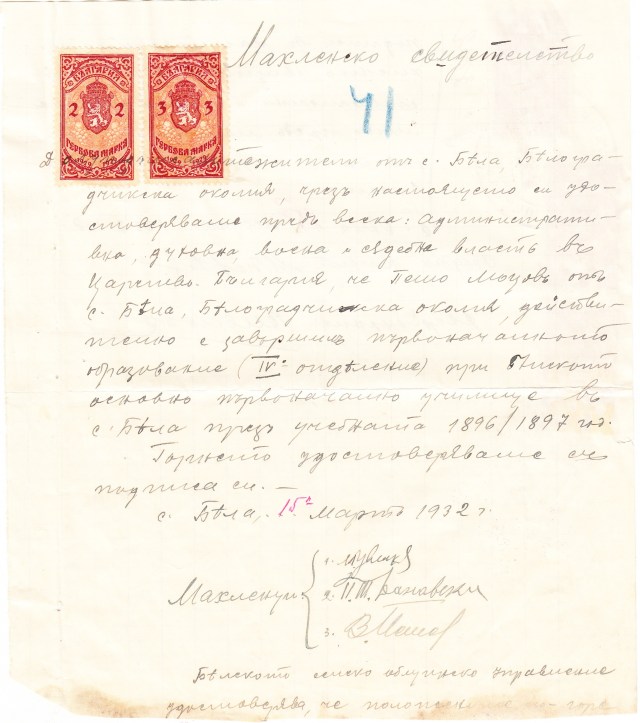 Махленско свидетелство
БЪЛГАРИЯ БЪЛГАРИЯ
2 2 3 3
ГЕРБОВА МАРКА ГЕРБОВА МАРКА
41
жители отъ с. Бѣла, Бѣлогра-
дчикска околия, чрезъ настоящето си удо-
стоверяваме предъ всека: Административ-
на, духовна, воена и съдебна власть въ
Царство България, че Пешо Моцовъ отъ
с. Бѣла, Бѣлоградчикска околия, действи-
телно е завършилъ първоначалното
образование (IV о отдѣление) при Бѣлското
основно първоначално училище въ
с. Бѣла презъ учебната 1896/1897 год.
Горнето удостоверяваме съ
подписа си. —
с. Бѣла, 15 Мартъ 1932 г.
Махленци
1.
2. П. Т.
3.
Бѣлското селско общинско управление
удостоверява, че положените по-горе